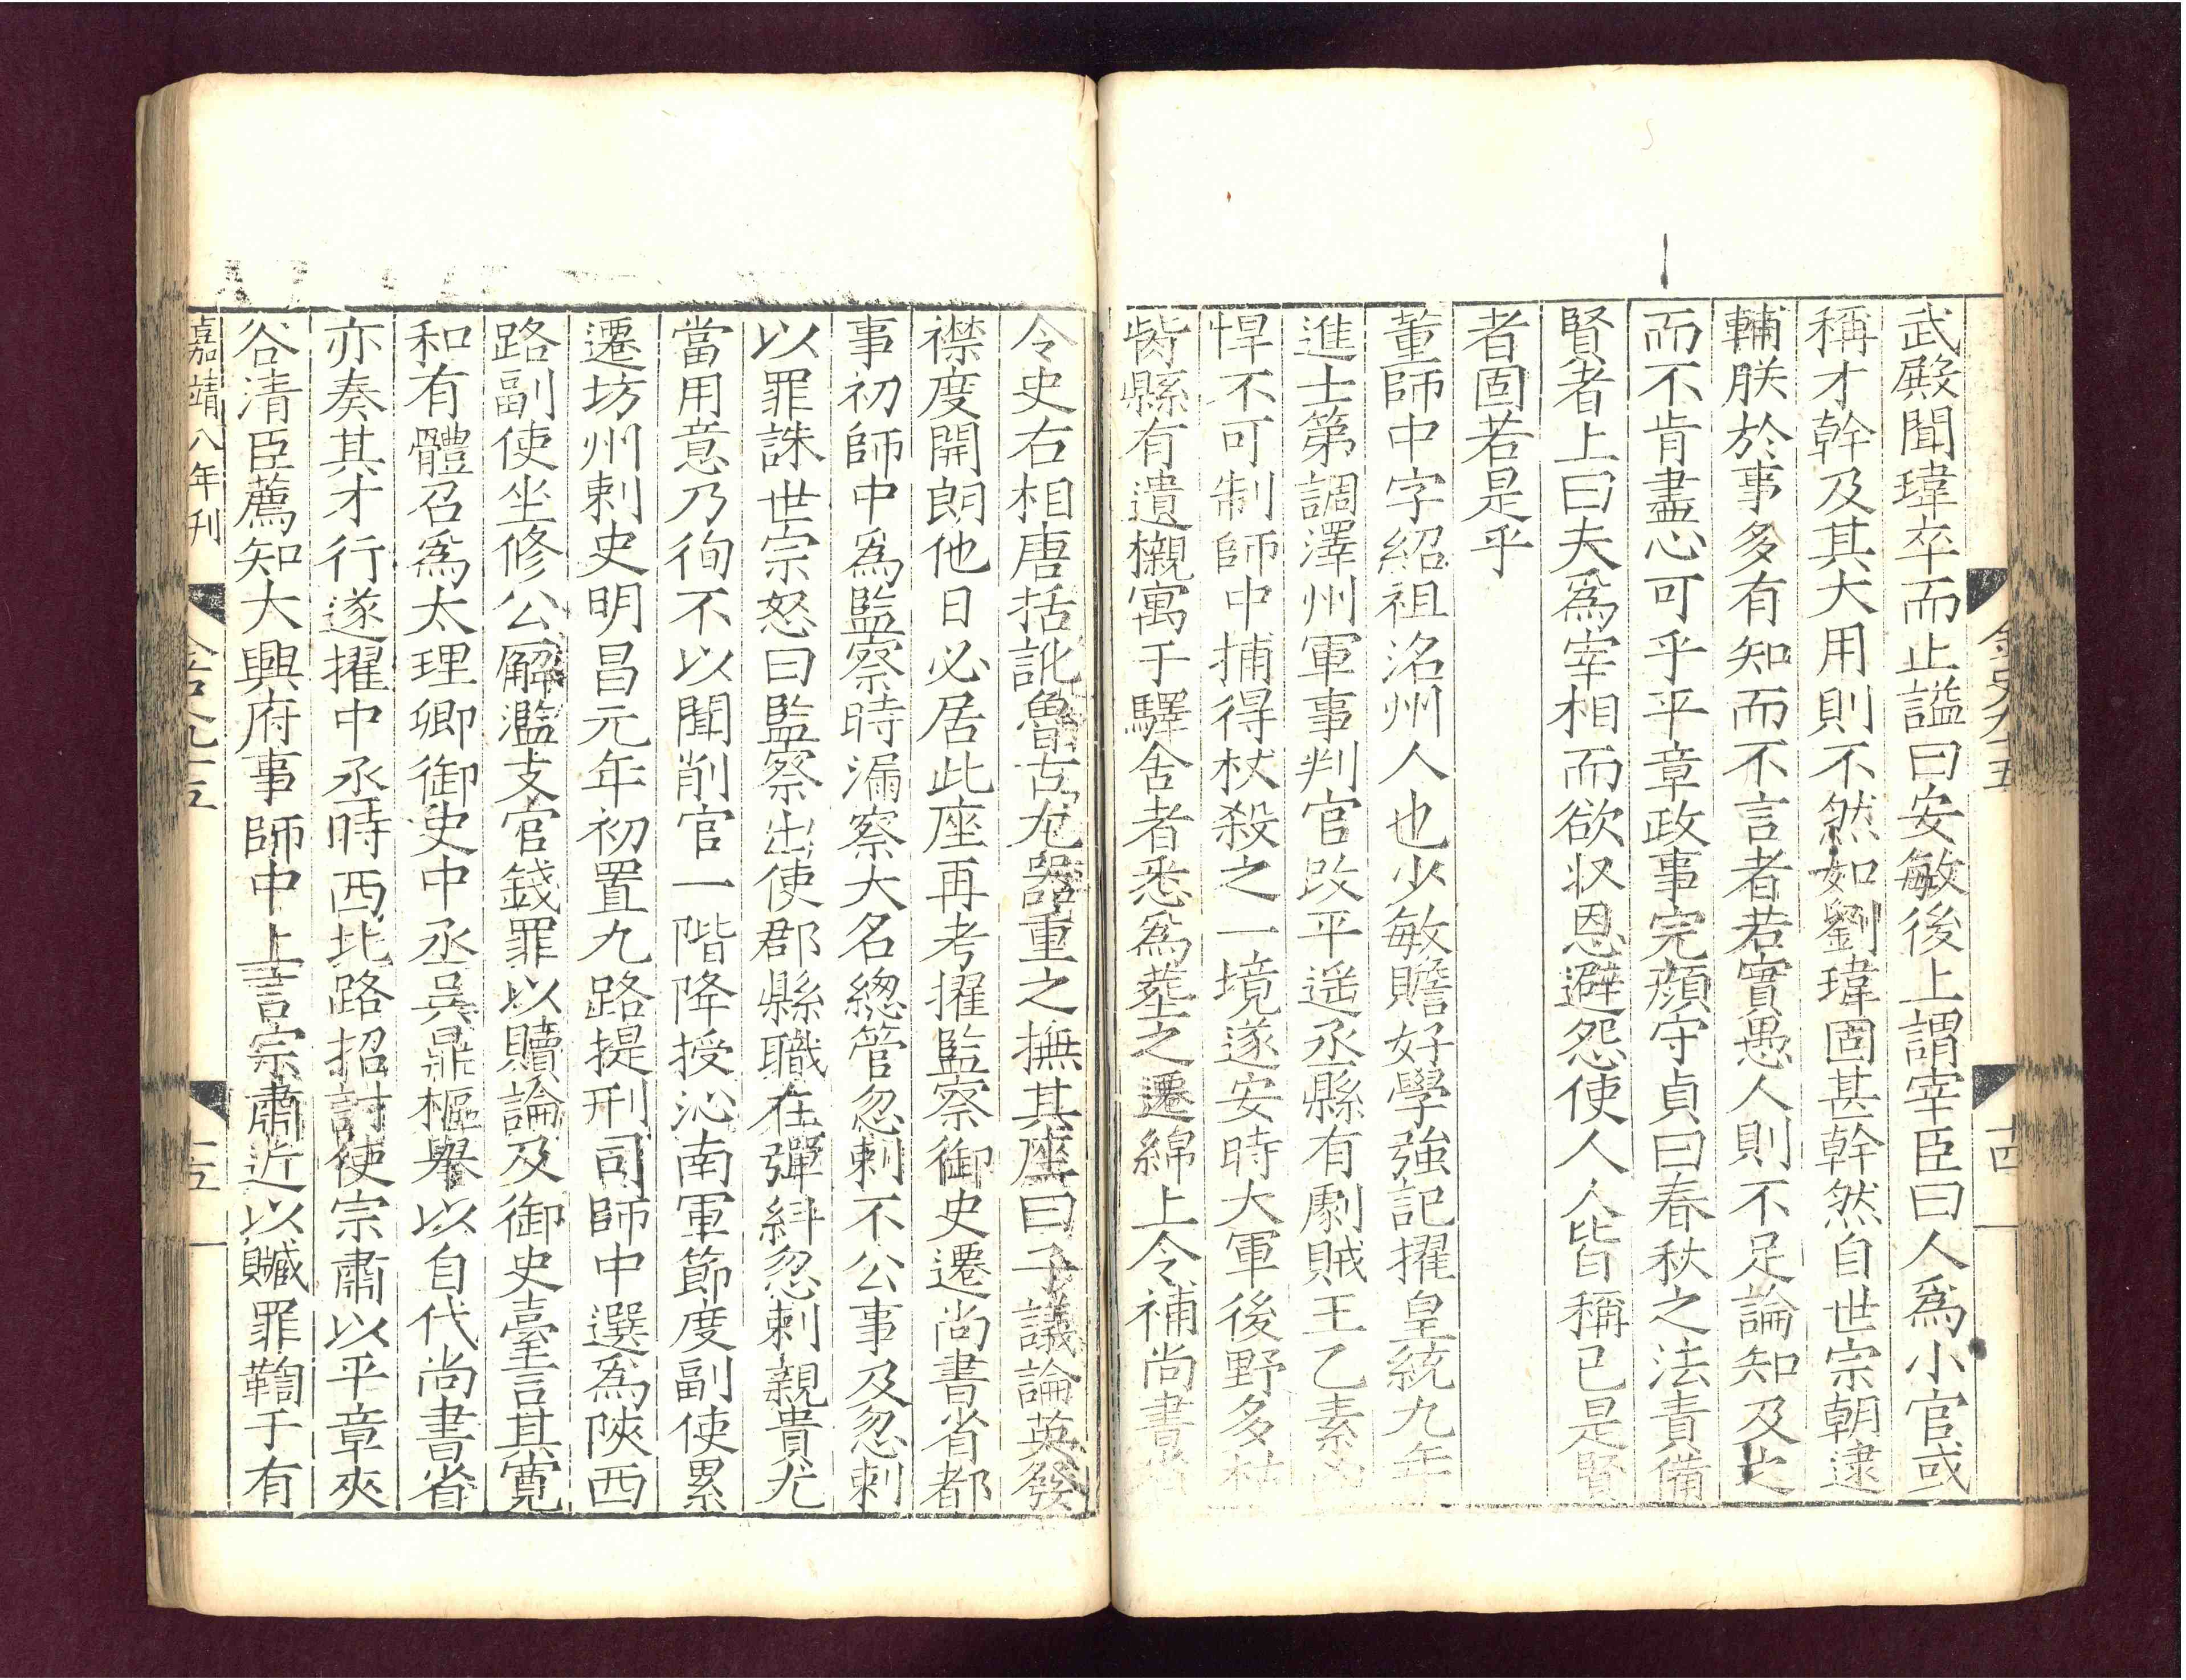 金史九十五
十四
武殿聞瑋卒而止謚曰安敏後上謂宰臣曰人爲小官或
稱才幹及其大用則不然如劉瑋固甚幹然自世宗朝逮
輔朕於事多有知而不言者若實愚人則不足論知及之
而不肯盡心可乎平章政事完顔守貞曰春秋之法責備
賢者上曰夫爲宰相而欲収恩避怨使人人皆稱己是賢
者固若是乎
董師中字紹祖洺州人也少敏贍好學強記擢皇統九年
進士第調澤州軍事判官改平遥丞縣有劇賊王乙素
悍不可制師中捕得杖殺之一境遂安時大軍後野多枯
胔縣有遺櫬寓于驛舍者悉爲塟之遷綿上令補尚書省
令史右相唐括訛魯古尤器重之撫其座曰子議論英發
襟度開朗他日必居此座再考擢監察御史遷尚書省都
事初師中爲監察時漏察大名總管忽剌不公事及忽剌
以罪誅世宗怒曰監察出使郡縣職在彈糾忽剌親貴尤
當用意乃徇不以聞削官一階降授沁南軍節度副使累
遷坊州剌史明昌元年初置九路提刑司師中選爲陝西
路副使坐修公廨濫支官錢罪以贖論及御史臺言其寬
和有體召爲大理卿御史中丞吳鼎樞舉以自代尚書省
亦奏其才行遂擢中丞時西北路招討使宗肅以平章夾
谷清臣薦知大興府事師中上言宗肅近以贓罪鞫于有
嘉靖八年刊